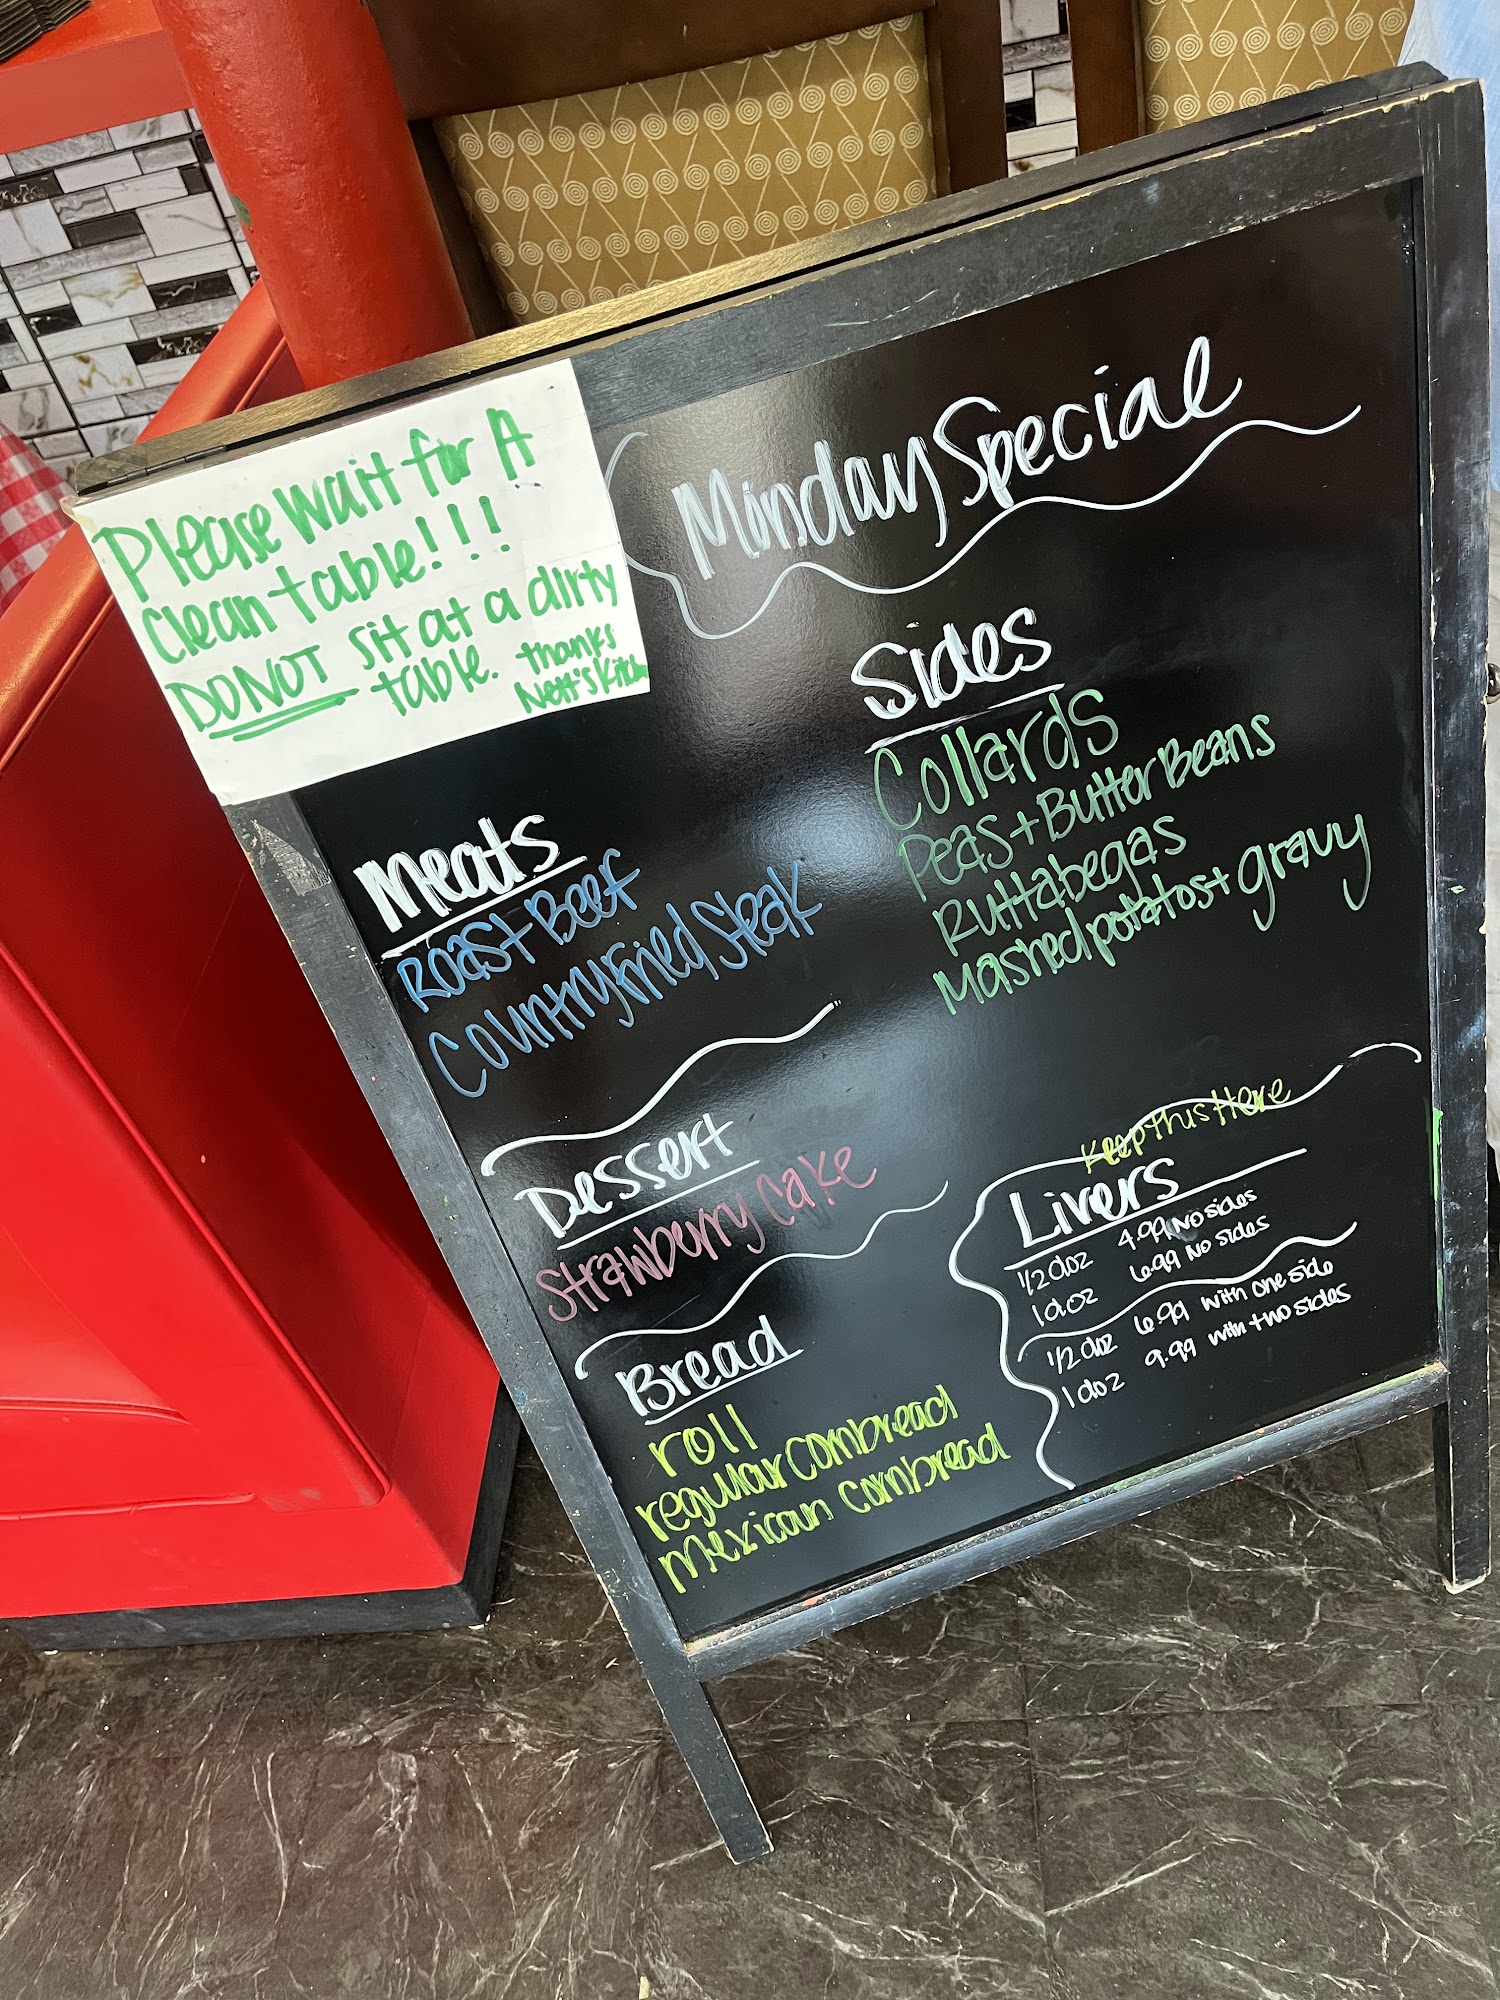 Please wait for A
clean table!!!
DO NOT sit at a dirty
table. thanks
Nett's Kitchen
Monday Special
Meats
Roast Beef
Country Fried Steak
Sides
Collards
Peas + Butter Beans
Ruttabegas
Mashed potatos + gravy
Dessert
Strawberry Cake
Bread
roll
regular cornbread
mexican cornbread
Keep This Here
Livers
1/2 doz 4.99 No sides
1 doz 6.99 No sides
1/2 doz 6.99 with one side
1 doz 9.99 with two sides